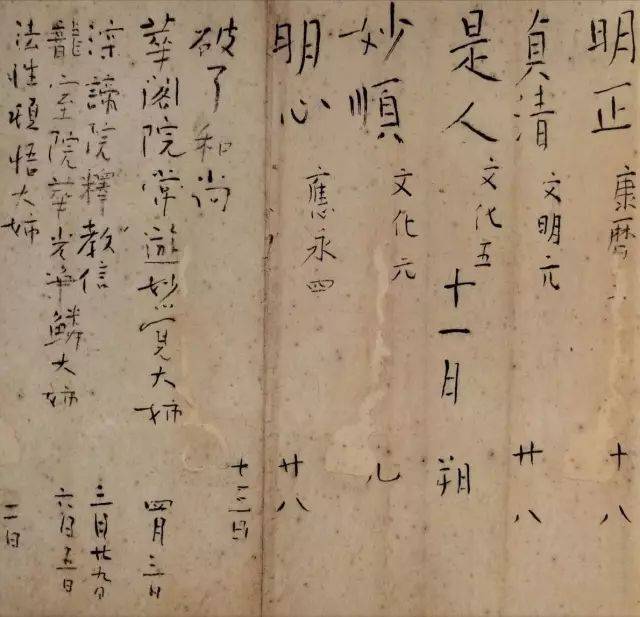 明正 康暦二 十八
貞清 文明元 廿八
是人 文化五 十一月 朔
妙順 文化元 九
明心 應永四 廿八
破了和尚 十三日
華閣院常遊妙寛大姉 四月三日
深諦院釋教信 三月廿九日
龍室院華光海鱗大姉 六月五日
法性頓悟大姉 二日